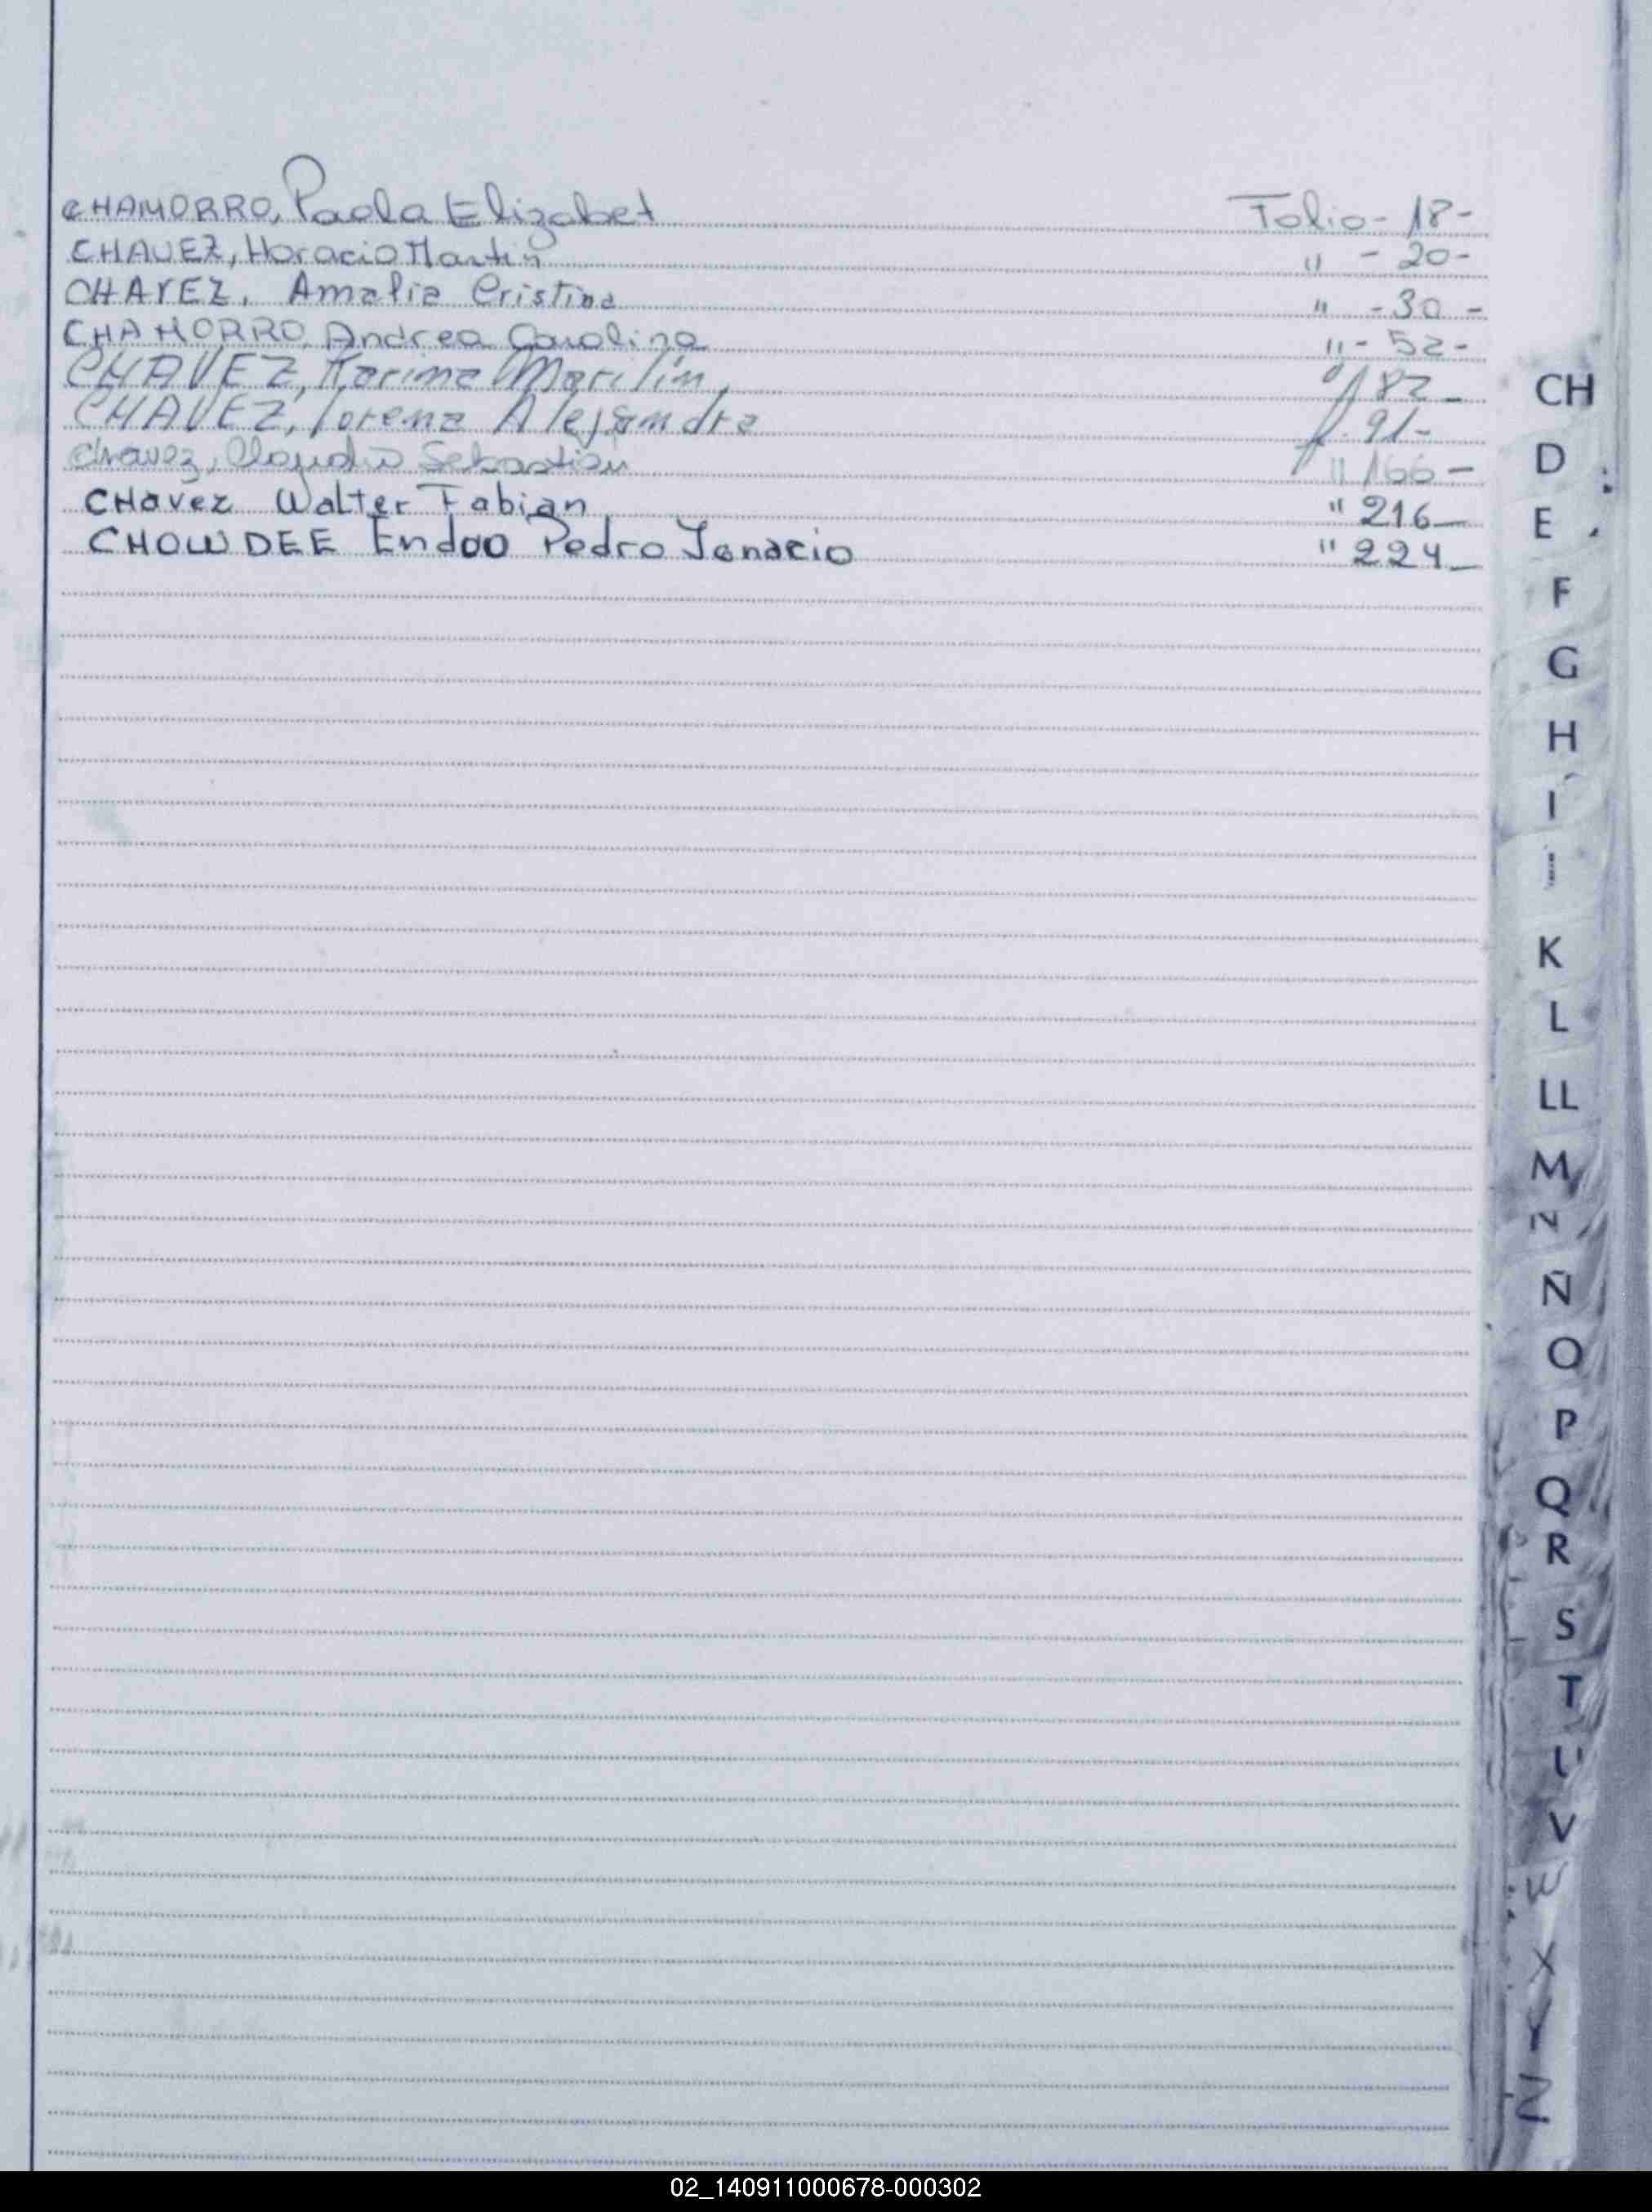 CHAMORRO, Paola Elizabet Folio - 18 -
CHAVEZ, Horacio Martin " - 20 -
CHAVEZ, Amalia Cristina " - 30 -
CHAMORRO, Andrea Carolina " - 52 -
CHAVEZ, Karina Marilin, 82 -
CHAVEZ, Lorena Alejandra f. 91 -
Chavez, Claudio Sebastian " 166 -
CHavez Walter Fabian " 216 -
CHOWDEE Endoo Pedro Ignacio " 224 -
CH
D
E
F
G
H
I
K
L
LL
M
N
Ñ
O
P
Q
R
S
T
U
V
W
X
Y
Z
02_140911000678-000302